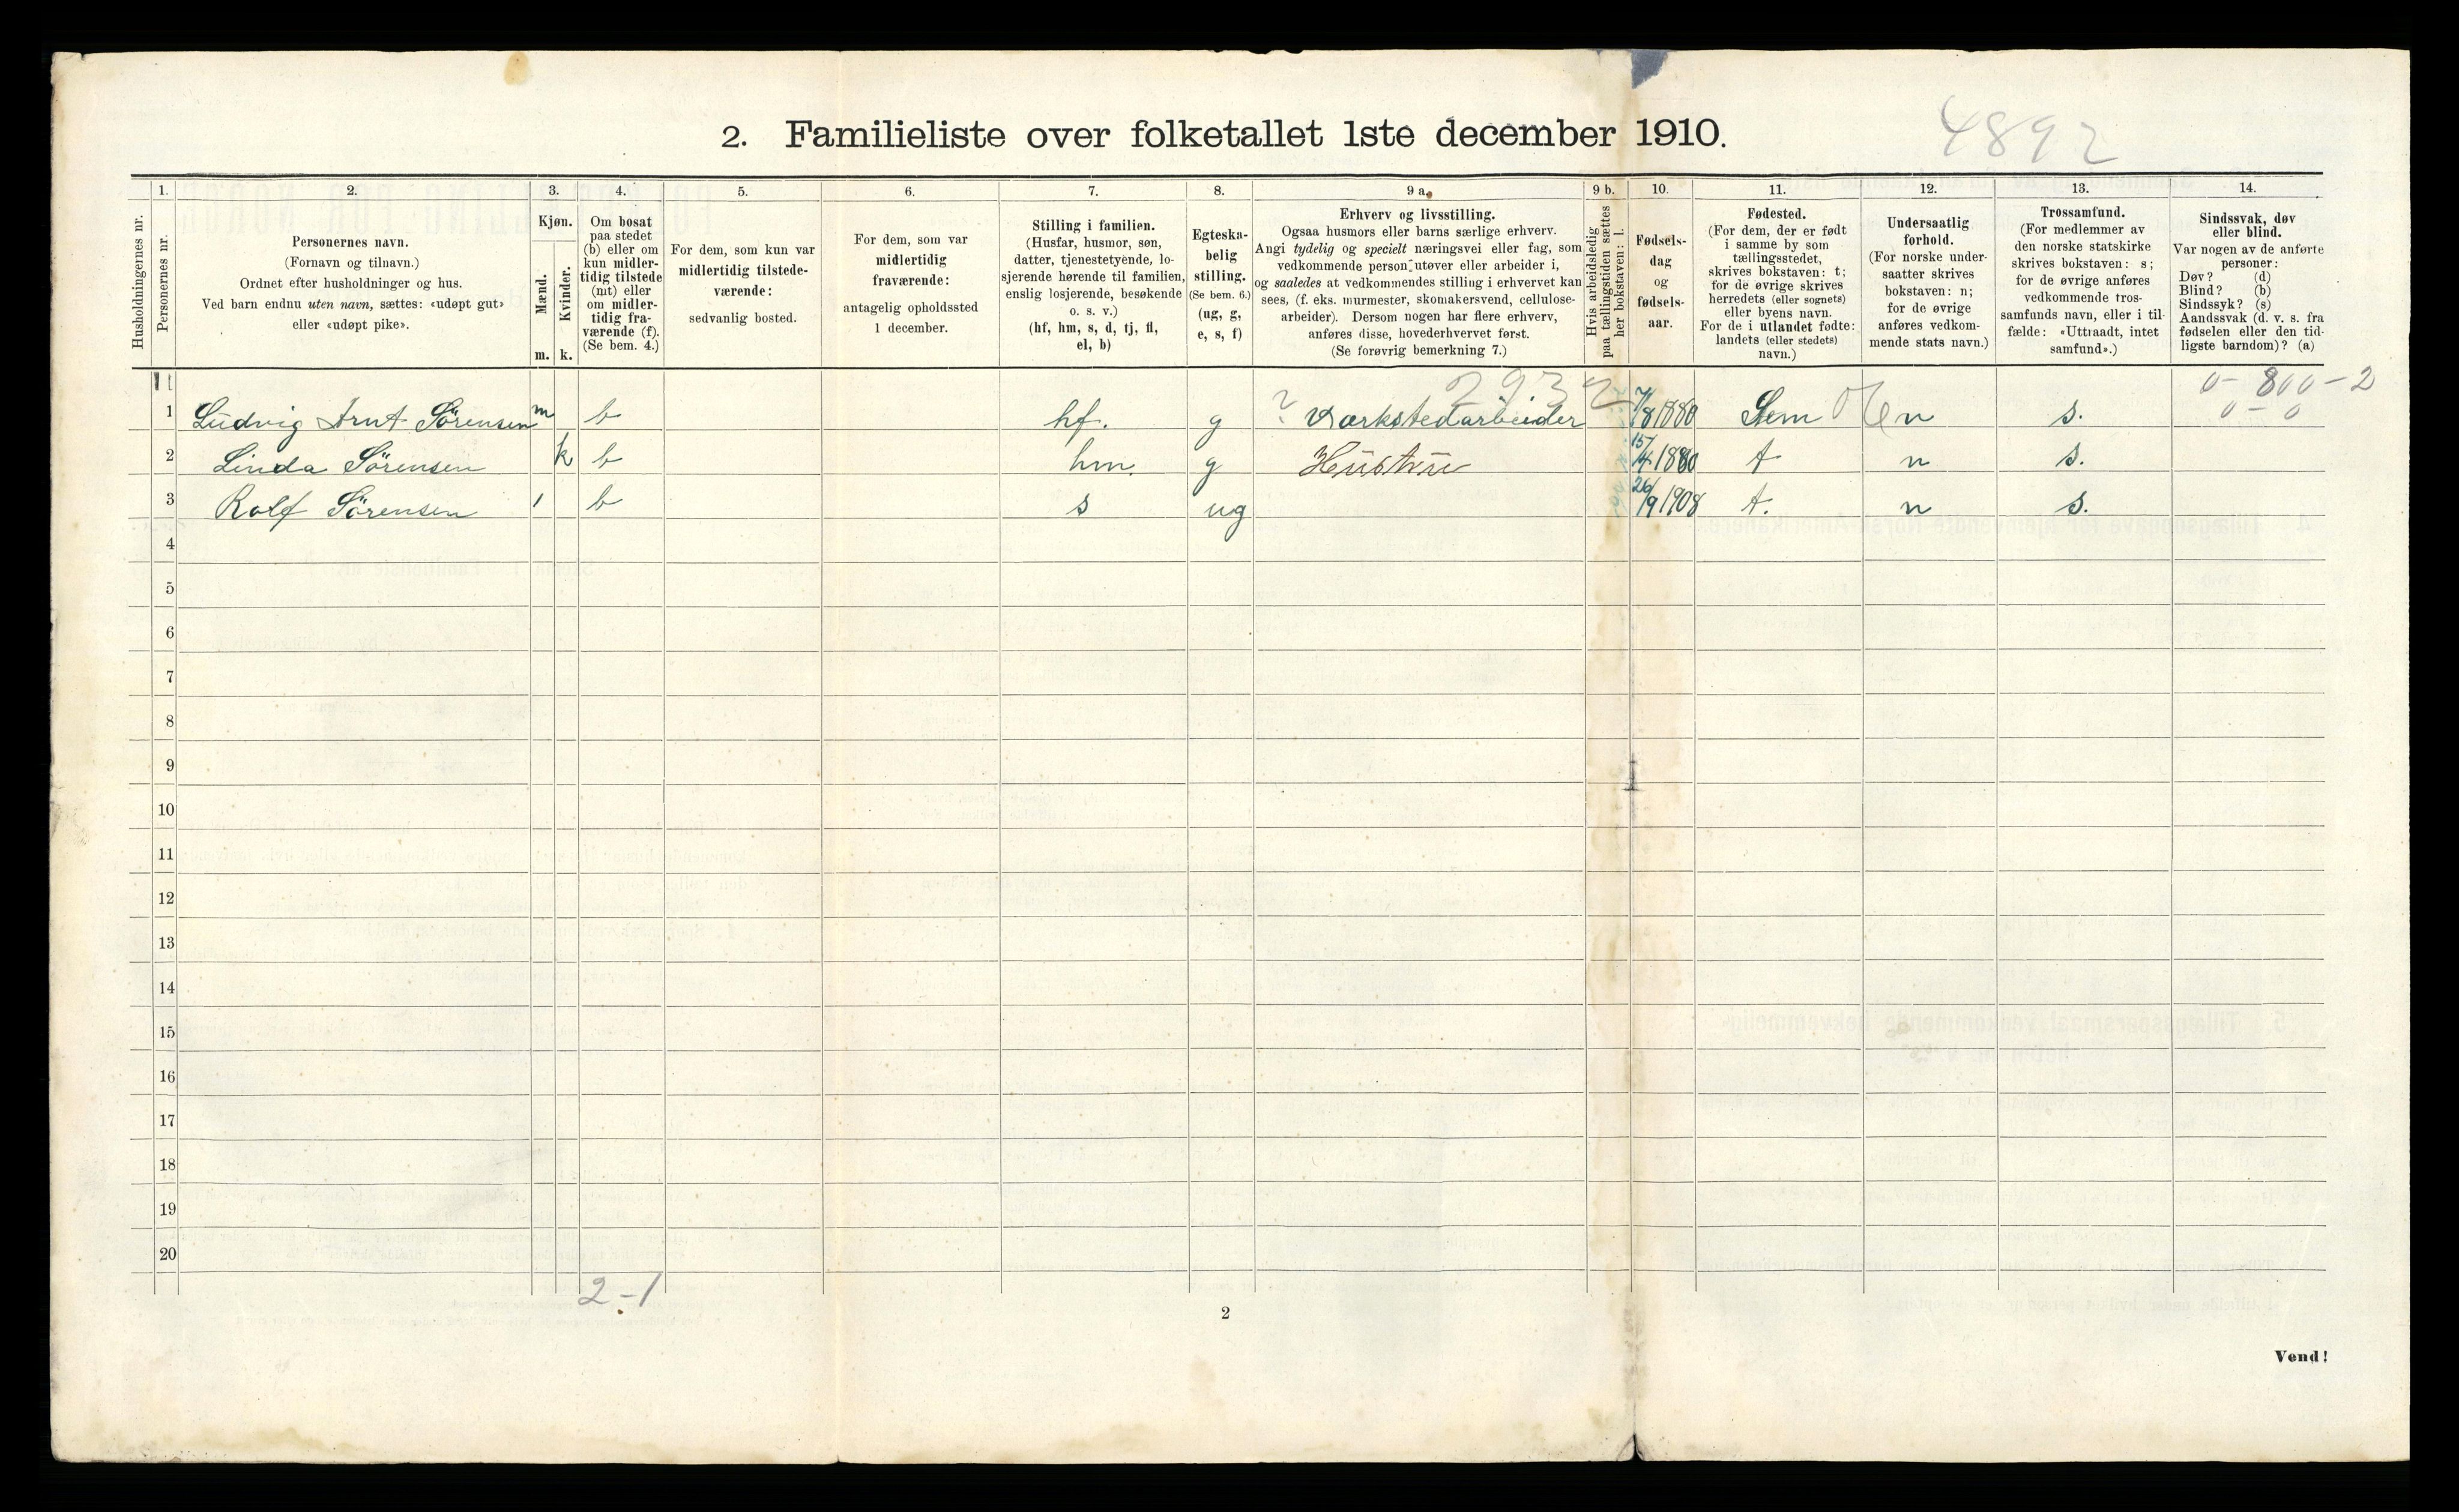 2. Familieliste over folketallet 1ste december 1910.
4892
1. 2. 3. 4. 5. 6. 7. 8. 9 a. 9 b. 10. 11. 12. 13. 14.
Husholdningernes nr.
Personernes nr.
Personernes navn.
(Fornavn og tilnavn.)
Ordnet efter husholdninger og hus.
Ved barn endnu uten navn, sættes: «udøpt gut»
eller «udøpt pike».
Kjøn.
Mænd.
Kvinder.
m. k.
Om bosat
paa stedet
(b) eller om
kun midler-
tidig tilstede
(mt) eller
om midler-
tidig fra-
værende (f).
(Se bem. 4.)
For dem, som kun var
midlertidig tilstede-
værende:
sedvanlig bosted.
For dem, som var
midlertidig
fraværende:
antagelig opholdssted
1 december.
Stilling i familien.
(Husfar, husmor, søn,
datter, tjenestetyende, lo-
sjerende hørende til familien,
enslig losjerende, besøkende
o. s. v.)
(hf, hm, s, d, tj, fl,
el, b)
Egteska-
belig
stilling.
(Se bem. 6.)
(ug, g,
e, s, f)
Erhverv og livsstilling.
Ogsaa husmors eller barns særlige erhverv.
Angi tydelig og specielt næringsvei eller fag, som
vedkommende person utøver eller arbeider i,
og saaledes at vedkommendes stilling i erhvervet kan
sees, (f. eks. murmester, skomakersvend, cellulose-
arbeider). Dersom nogen har flere erhverv,
anføres disse, hovederhvervet først.
(Se forøvrig bemerkning 7.)
Hvis arbeidsledig
paa tællingstiden sættes
her bokstaven: l.
Fødsels-
dag
og
fødsels-
aar.
Fødested.
(For dem, der er født
i samme by som
tællingsstedet,
skrives bokstaven: t;
for de øvrige skrives
herredets (eller sognets)
eller byens navn.
For de i utlandet fødte:
landets (eller stedets)
navn.)
Undersaatlig
forhold.
(For norske under-
saatter skrives
bokstaven: n;
for de øvrige
anføres vedkom-
mende stats navn.)
Trossamfund.
(For medlemmer av
den norske statskirke
skrives bokstaven: s;
for de øvrige anføres
vedkommende tros-
samfunds navn, eller i til-
fælde: «Uttraadt, intet
samfund».)
Sindssvak, døv
eller blind.
Var nogen av de anførte
personer:
Døv? (d)
Blind? (b)
Sindssyk? (s)
Aandssvak (d. v. s. fra
fødselen eller den tid-
ligste barndom)? (a)
2932
0 - 800 - 2
0 - 0
1 Ludvig Arnt Sörensen m b hf. g ? Værkstedarbeider 7/8 1880 Sem n s.
2 Linda Sörensen k b hm. g Hustru 15/4 1880 t n s.
3 Rolf Sörensen 1 b s ug 26/9 1908 t. n s.
4
5
6
7
8
9
10
11
12
13
14
15
16
17
18
19
20
2-1
2
Vend!